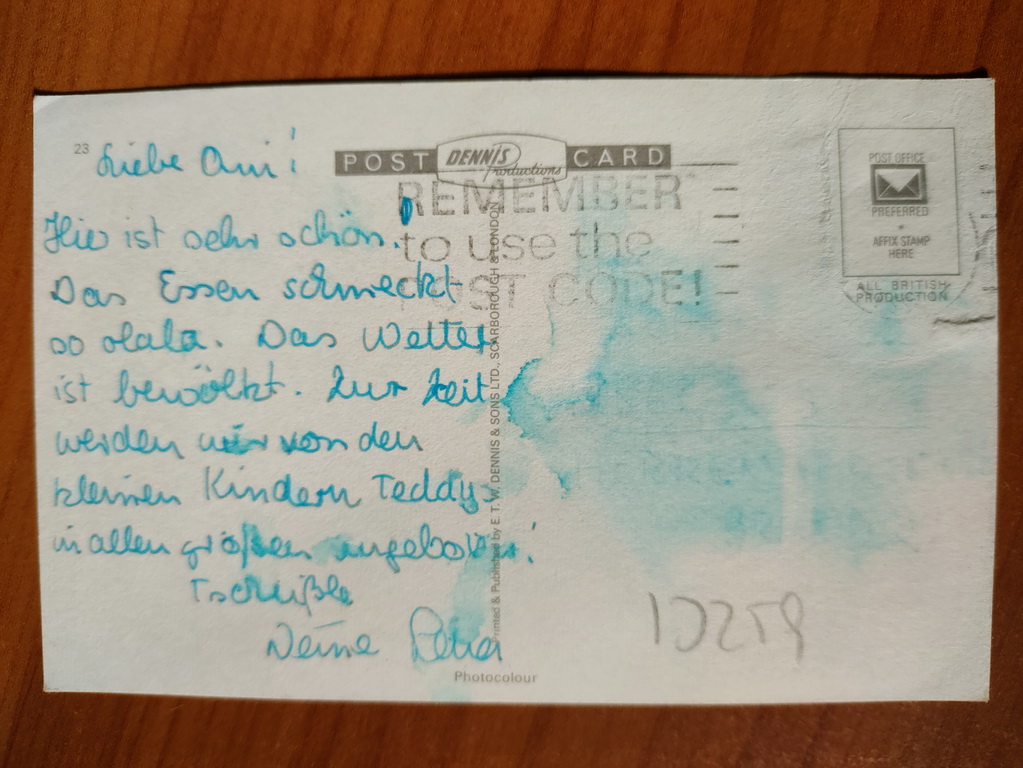 23
Liebe Ani!
POST DENNIS Productions CARD
REMEMBER
to use the
POST CODE!
POST OFFICE
PREFERRED
AFFIX STAMP
HERE
ALL BRITISH
PRODUCTION
Hier ist sehr schön.
Das Essen schmeckt
so olala. Das Wetter
ist bewölkt. Zur Zeit
werden wir von den
kleinen Kindern Teddys
in allen größen angeboten!
Tschüßle
Deine Petra
Printed & Published by E. T. W. DENNIS & SONS LTD., SCARBOROUGH & LONDON
Photocolour